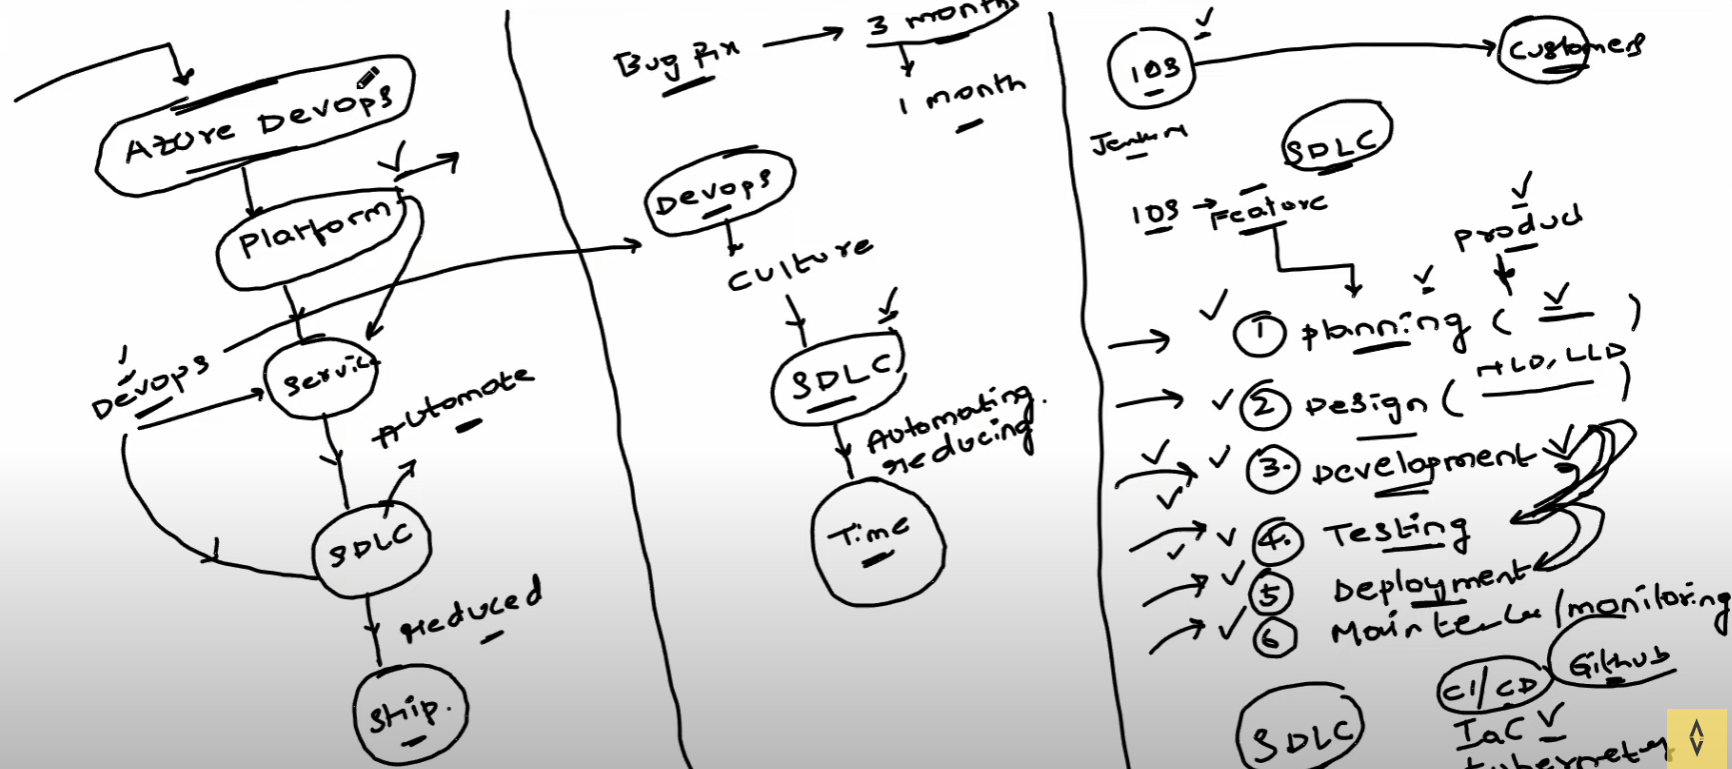 Azure Devops
Platform
Service
Devops
Automate
SDLC
reduced
Ship.
Bug fix
3 month
1 month
Devops
Culture
SDLC
Automating.
reducing
Time
10s
Customers
SDLC
10s Feature
Product
1 Planning ( )
2 Design ( HLD, LLD )
3. Development
4. Testing
5 Deployment
6 /monitoring
Github
CI/CD
SDLC
IaC